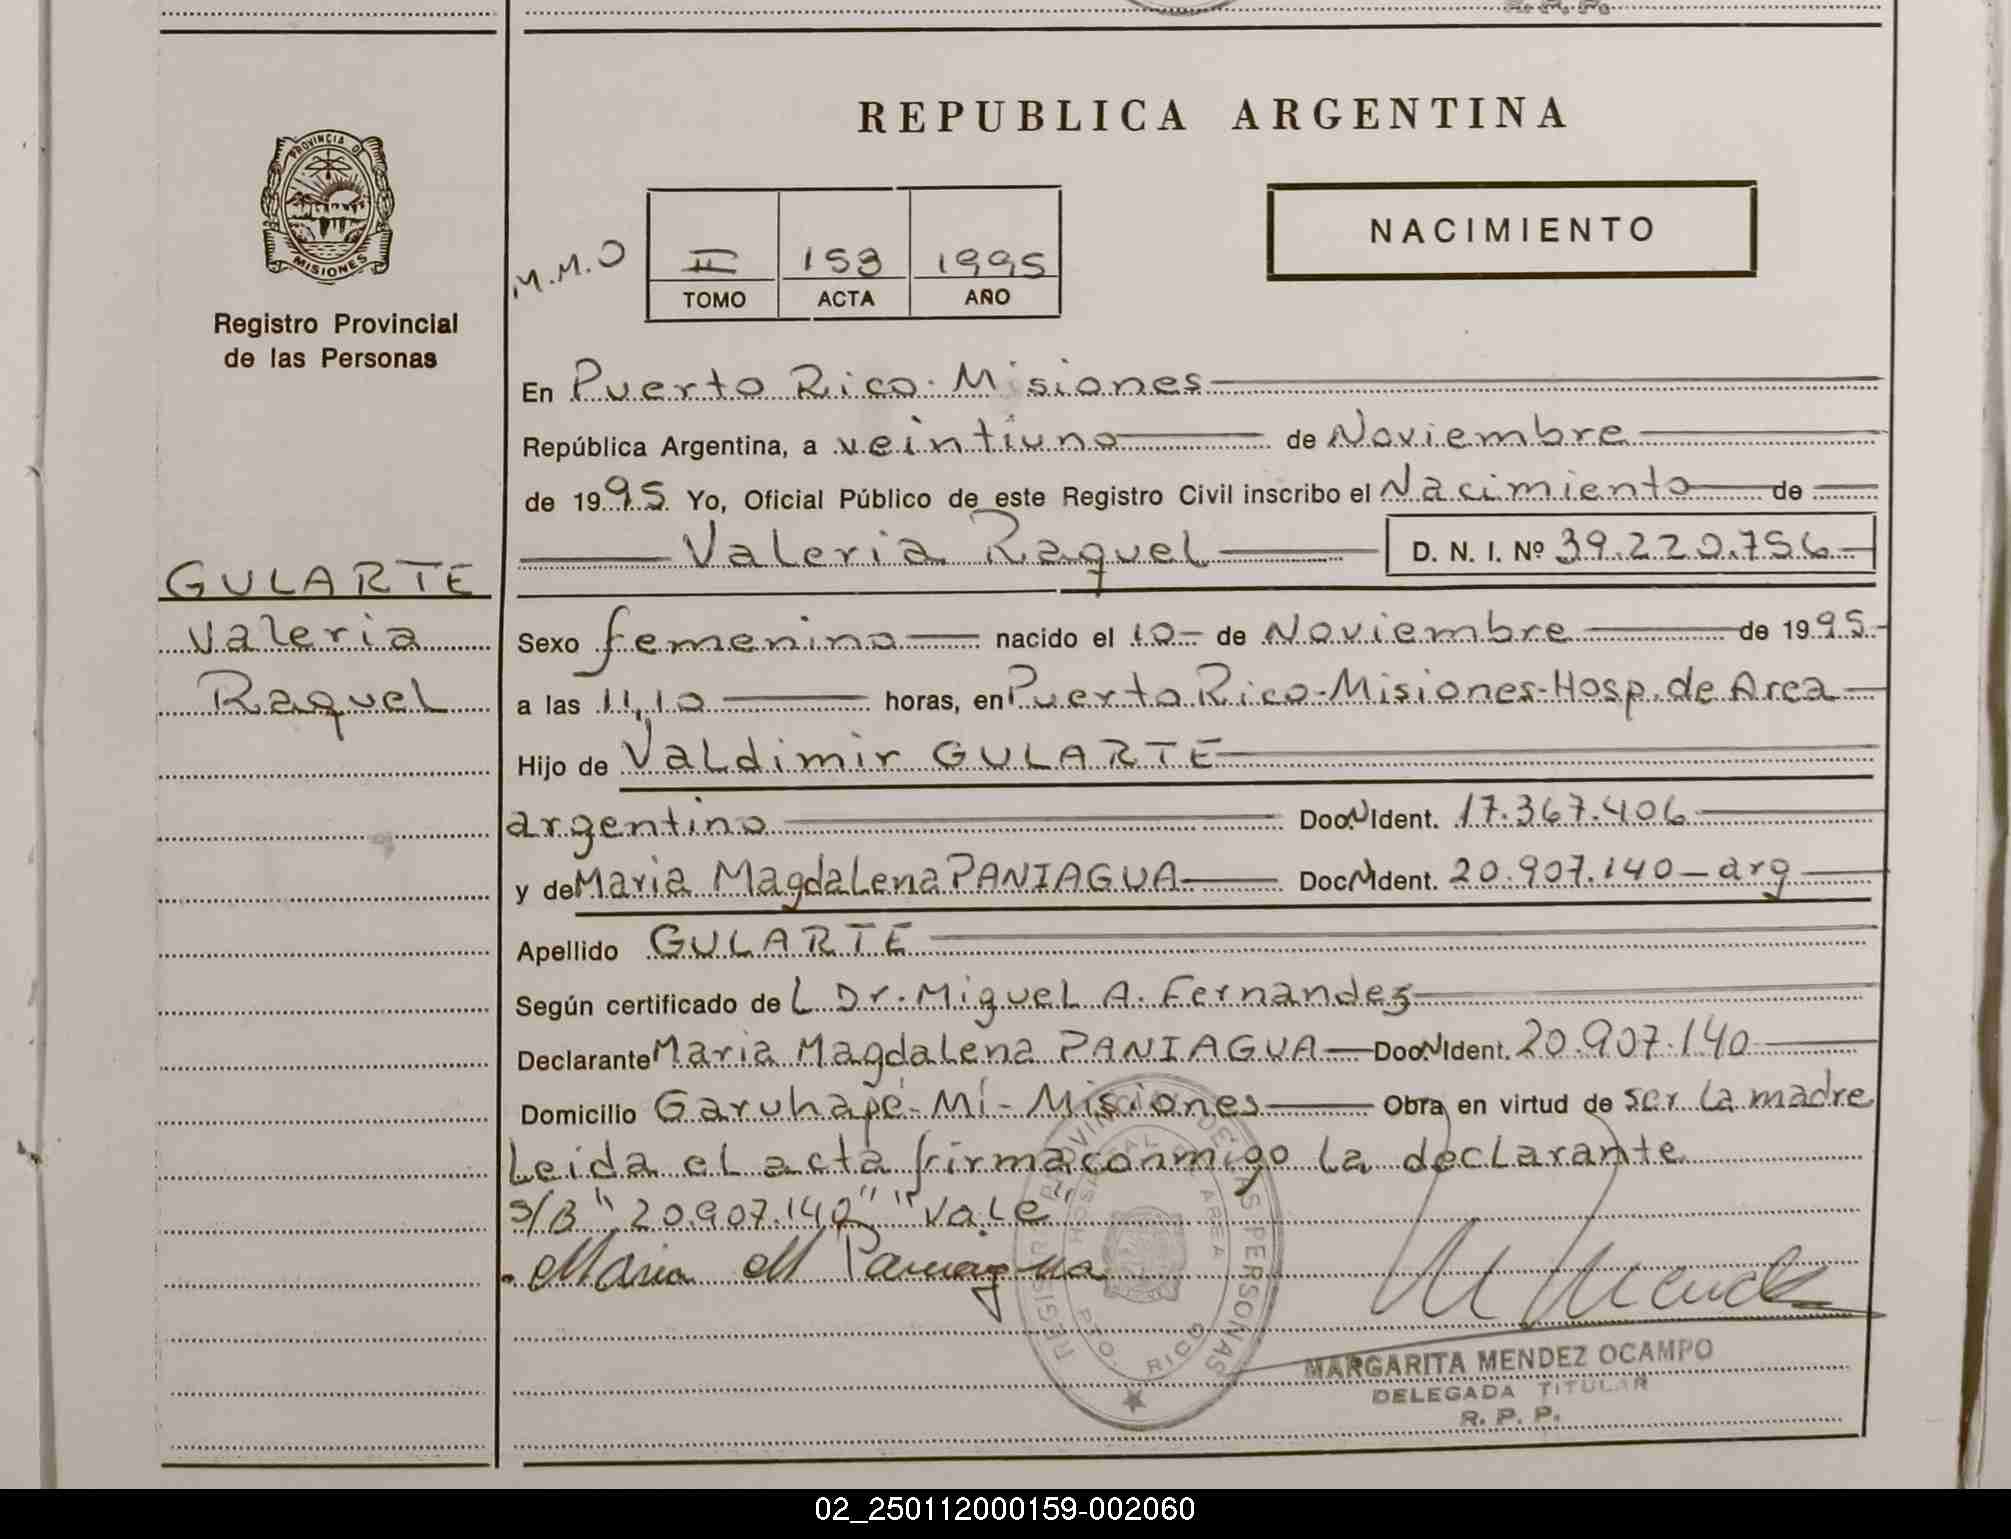 R. P. P.
PROVINCIA DE
MISIONES
Registro Provincial
de las Personas
GULARTE
Valeria
Raquel
REPUBLICA ARGENTINA
NACIMIENTO
M.M.O
II 153 1995
TOMO ACTA AÑO
En Puerto Rico. Misiones
República Argentina, a veintiuno de Noviembre
de 1995 Yo, Oficial Público de este Registro Civil inscribo el Nacimiento de
Valeria Raquel D. N. I. Nº 39.220.756
Sexo femenino nacido el 10 de Noviembre de 1995
a las 11,10 horas, en Puerto Rico-Misiones-Hosp. de Area
Hijo de Valdimir GULARTE
argentino Doc.N Ident. 17.367.406
y de Maria Magdalena PANIAGUA Doc.N Ident. 20.907.140 - arg
Apellido GULARTE
Según certificado de L Dr. Miguel A. Fernandez
Declarante Maria Magdalena PANIAGUA Doc.N Ident. 20.907.140
Domicilio Garuhapé-Mí-Misiones Obra en virtud de ser la madre
Leida el acta firma conmigo la declarante
S/B "20.907.140" "vale"
Maria M Paniagua
REGISTRO PROVINCIAL DE LAS PERSONAS
HOSPITAL DE AREA
PTO. RICO
MARGARITA MENDEZ OCAMPO
DELEGADA TITULAR
R. P. P.
02_250112000159-002060